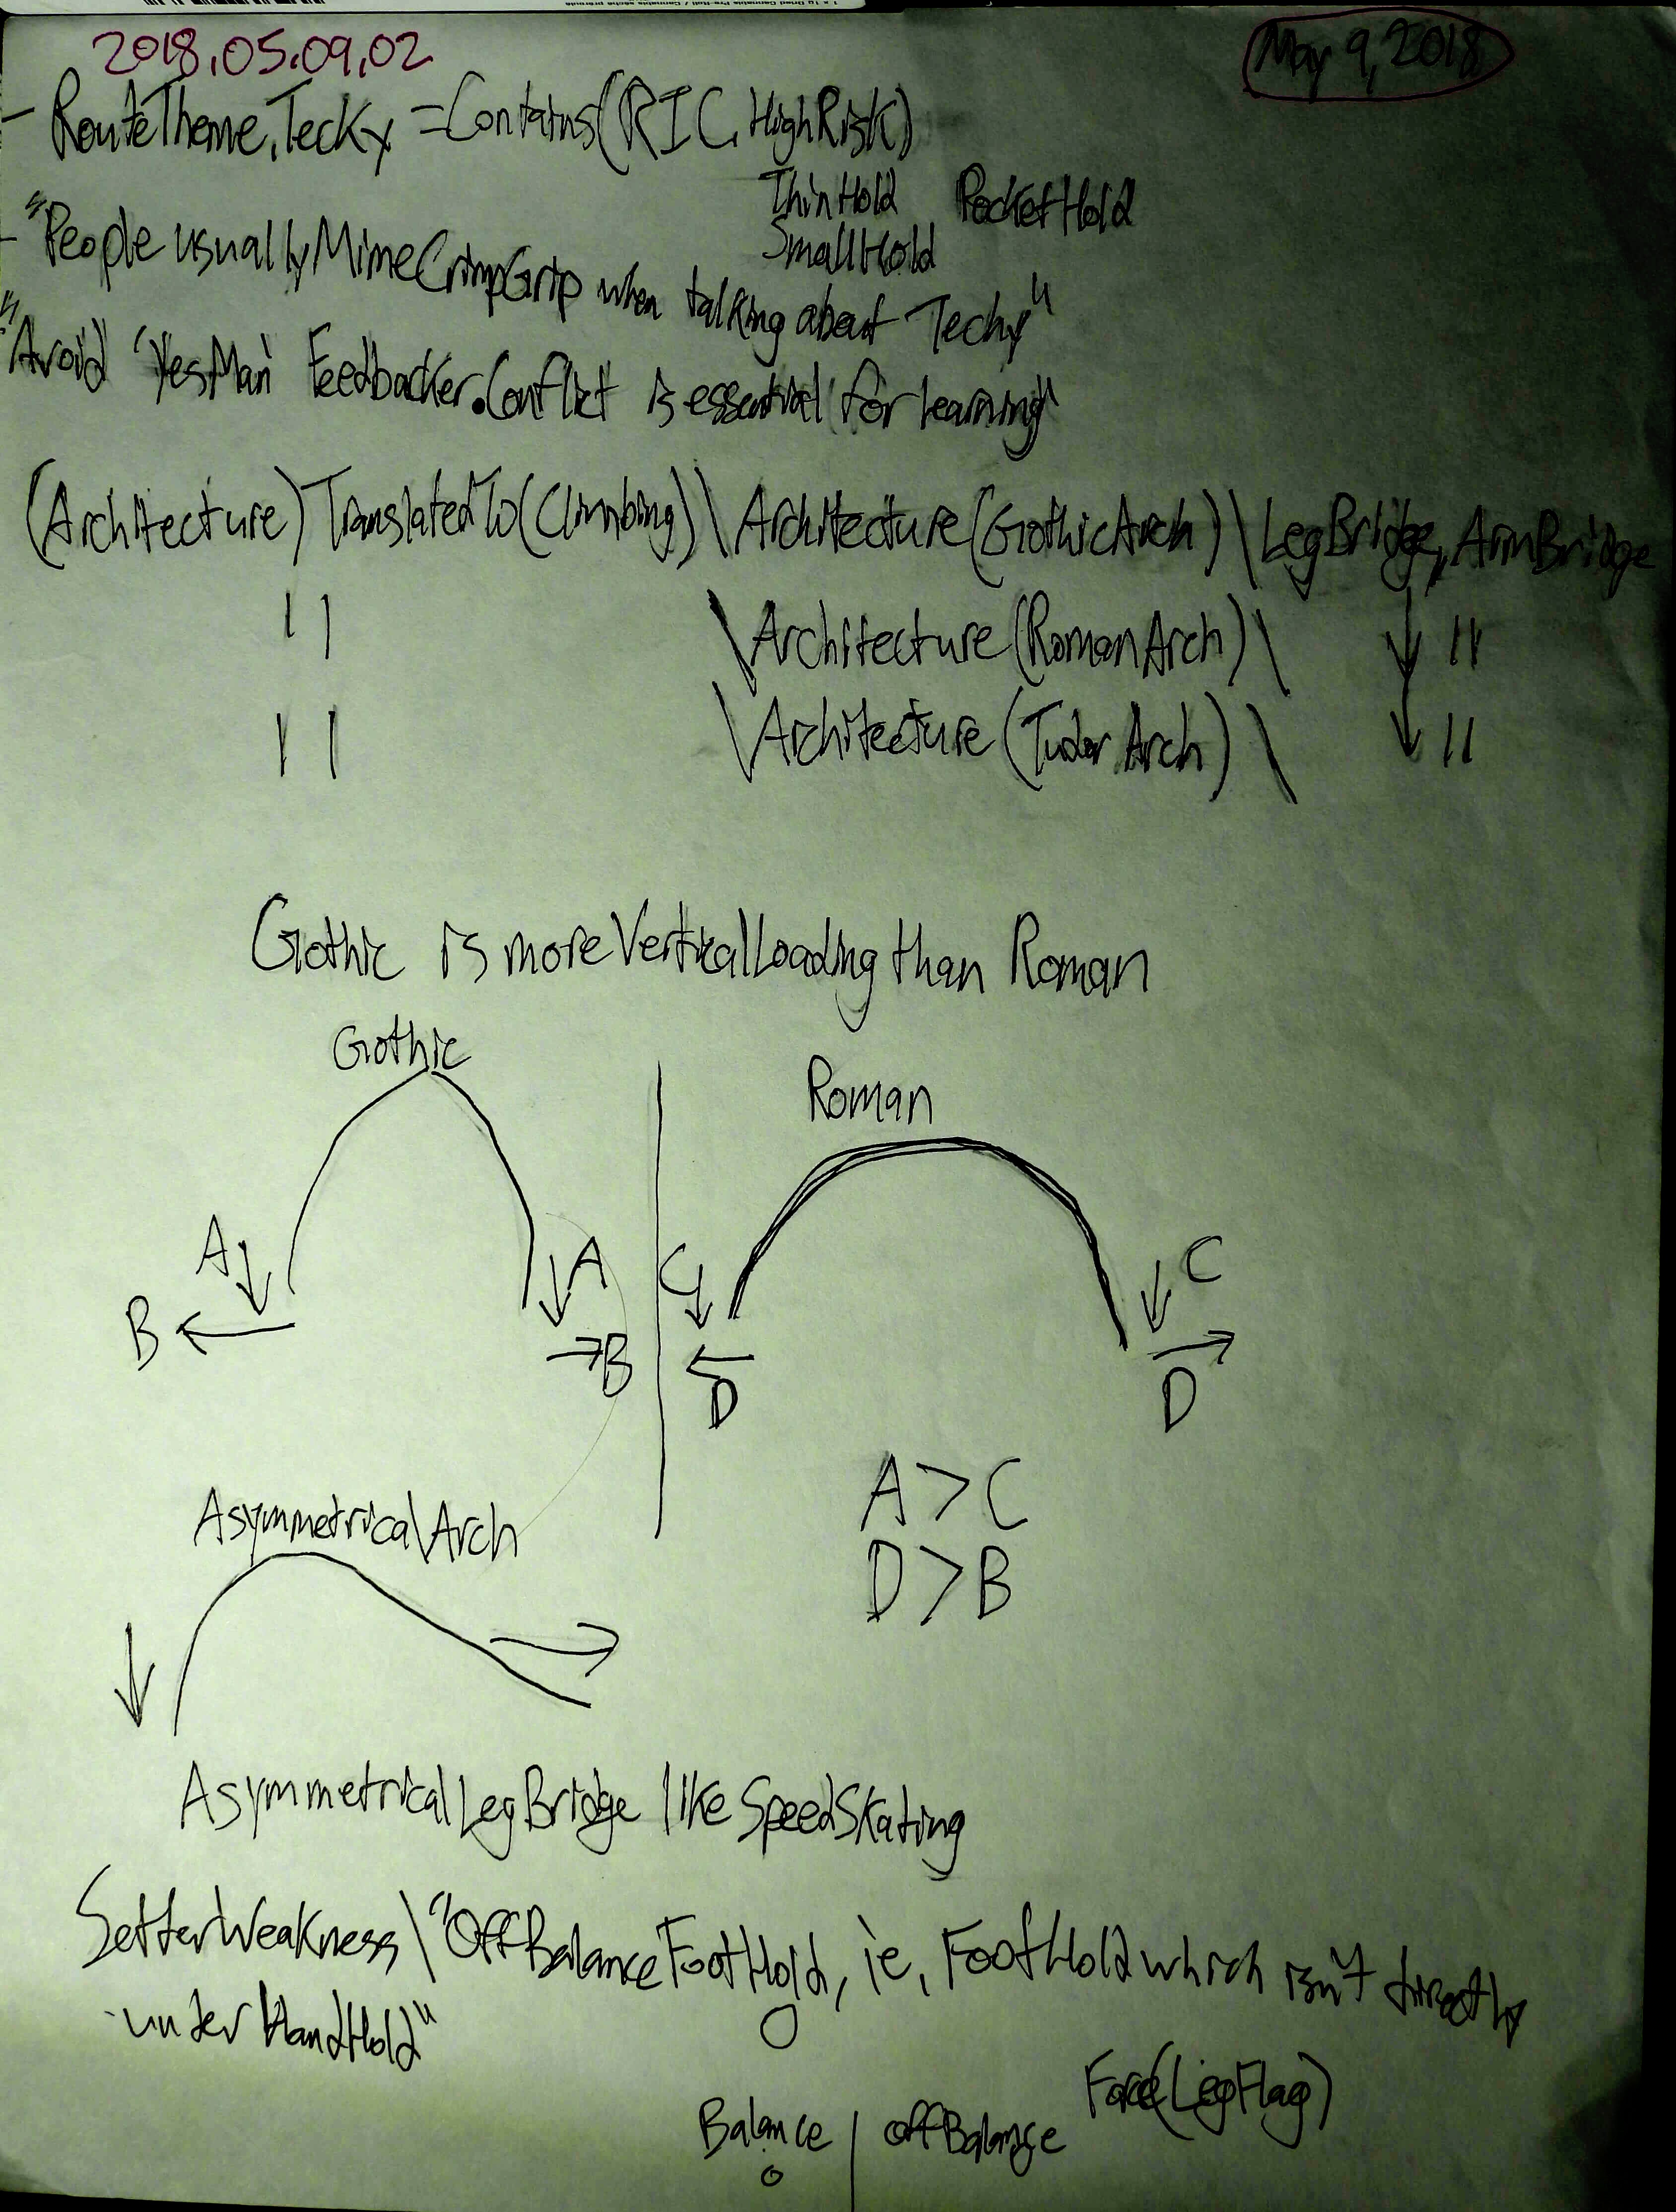 2018.05.09.02
May 9, 2018
- RouteTheme.Techy = Contains(RIC.HighRisk)
ThinHold PocketHold
SmallHold
- "People usually MimeCrimpGrip when talking about Techy"
"Avoid 'YesMan' Feedbacker. Conflict is essential for learning"
(Architecture)TranslatedTo(Climbing)\Architecture(GothicArch)\LegBridge, ArmBridge
" \Architecture(RomanArch)\ ↓ "
" \Architecture(TudorArch)\ ↓ "
Gothic is more VerticalLoading than Roman
Gothic
Roman
A A C C
B B D D
A > C
D > B
AsymmetricalArch
AsymmetricalLegBridge like SpeedSkating
SetterWeakness\"OffBalanceFootHold, ie, FootHold which isn't directly
under HandHold"
Force(LegFlag)
Balance | offBalance